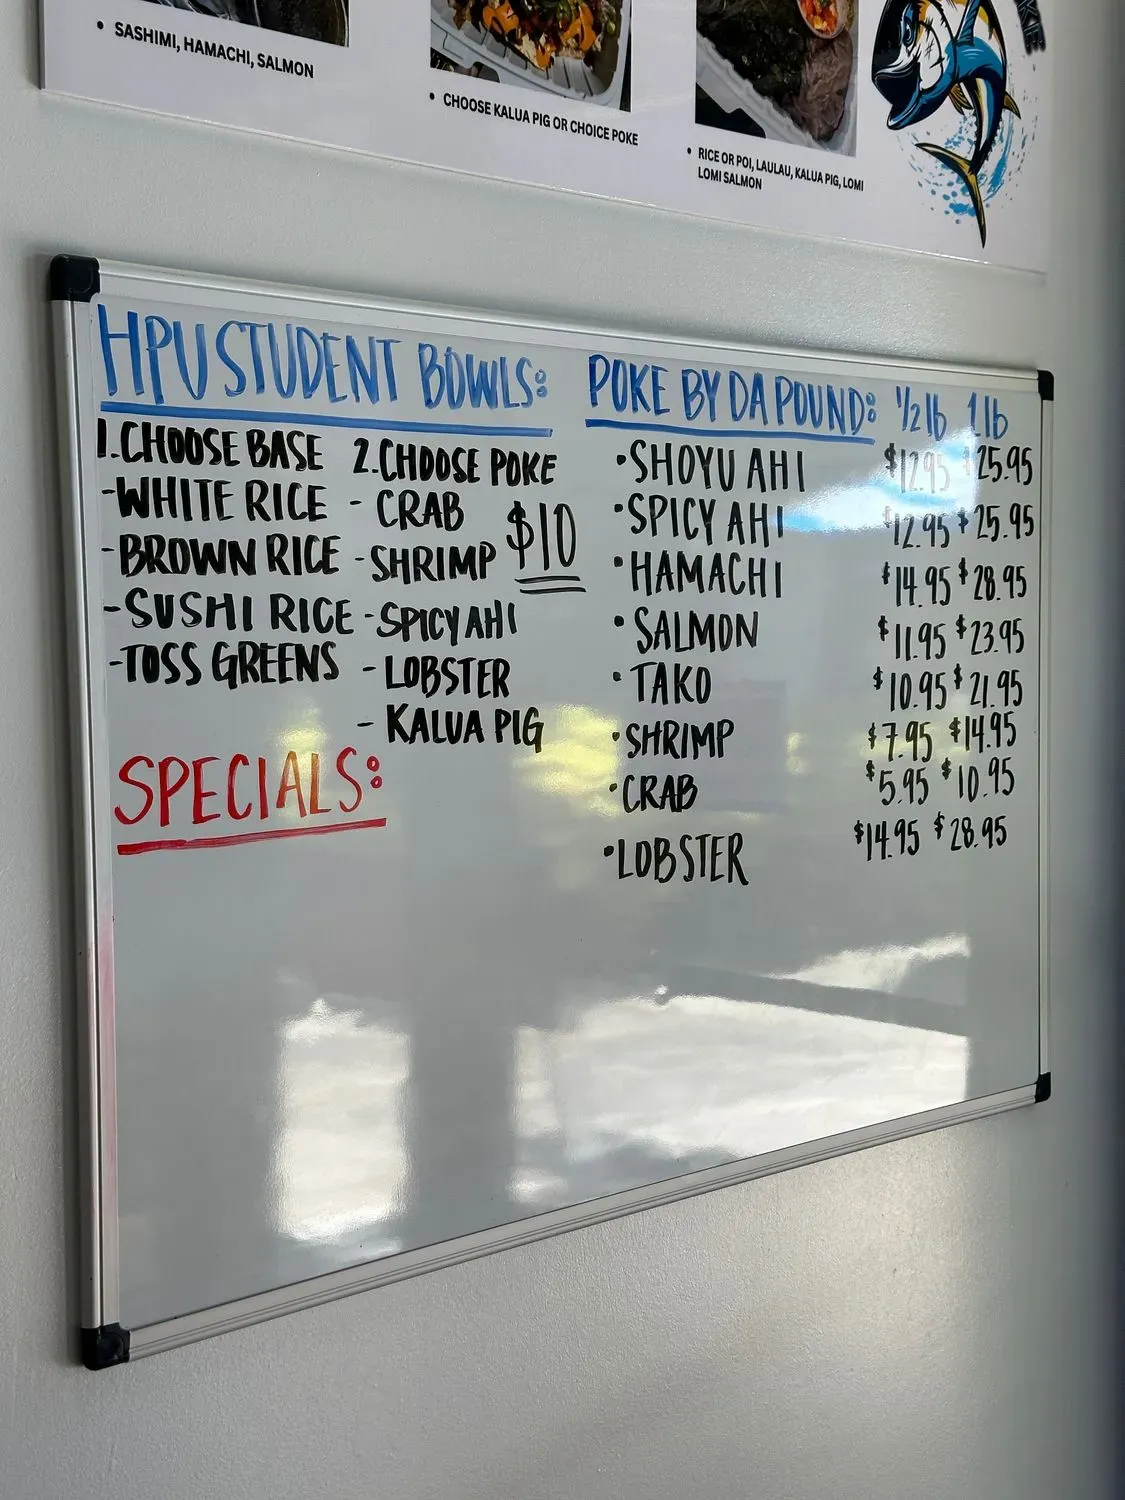 • SASHIMI, HAMACHI, SALMON
• CHOOSE KALUA PIG OR CHOICE POKE
• RICE OR POI, LAULAU, KALUA PIG, LOMI
LOMI SALMON
HPU STUDENT BOWLS:
1. CHOOSE BASE
- WHITE RICE
- BROWN RICE
- SUSHI RICE
- TOSS GREENS
2. CHOOSE POKE
- CRAB
- SHRIMP
- SPICY AHI
- LOBSTER
- KALUA PIG
$10
SPECIALS:
POKE BY DA POUND: 1/2 lb 1 lb
• SHOYU AHI $12.95 $25.95
• SPICY AHI $12.95 $25.95
• HAMACHI $14.95 $28.95
• SALMON $11.95 $23.95
• TAKO $10.95 $21.95
• SHRIMP $7.95 $14.95
• CRAB $5.95 $10.95
• LOBSTER $14.95 $28.95